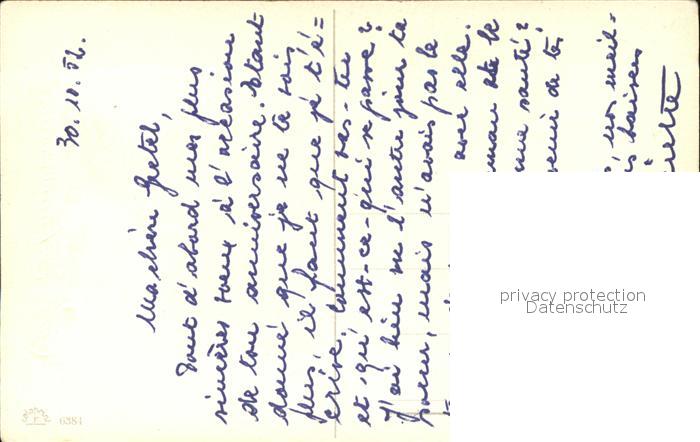 30.10.52.
Ma chère Gretel,
Tout d'abord mes plus
sincères voeux à l'occasion
de ton anniversaire. Étant
donné que je ne te vois
plus, il faut que je t'é=
crive. Comment vas-tu
et qu'est-ce-qui se passe?
J'ai bien vu l'autre jour ta
soeur, mais n'avais pas le
avec elle.
maman de
santé?
venir de t'é
, nos meil=
baisers
privacy protection
Datenschutz
6384